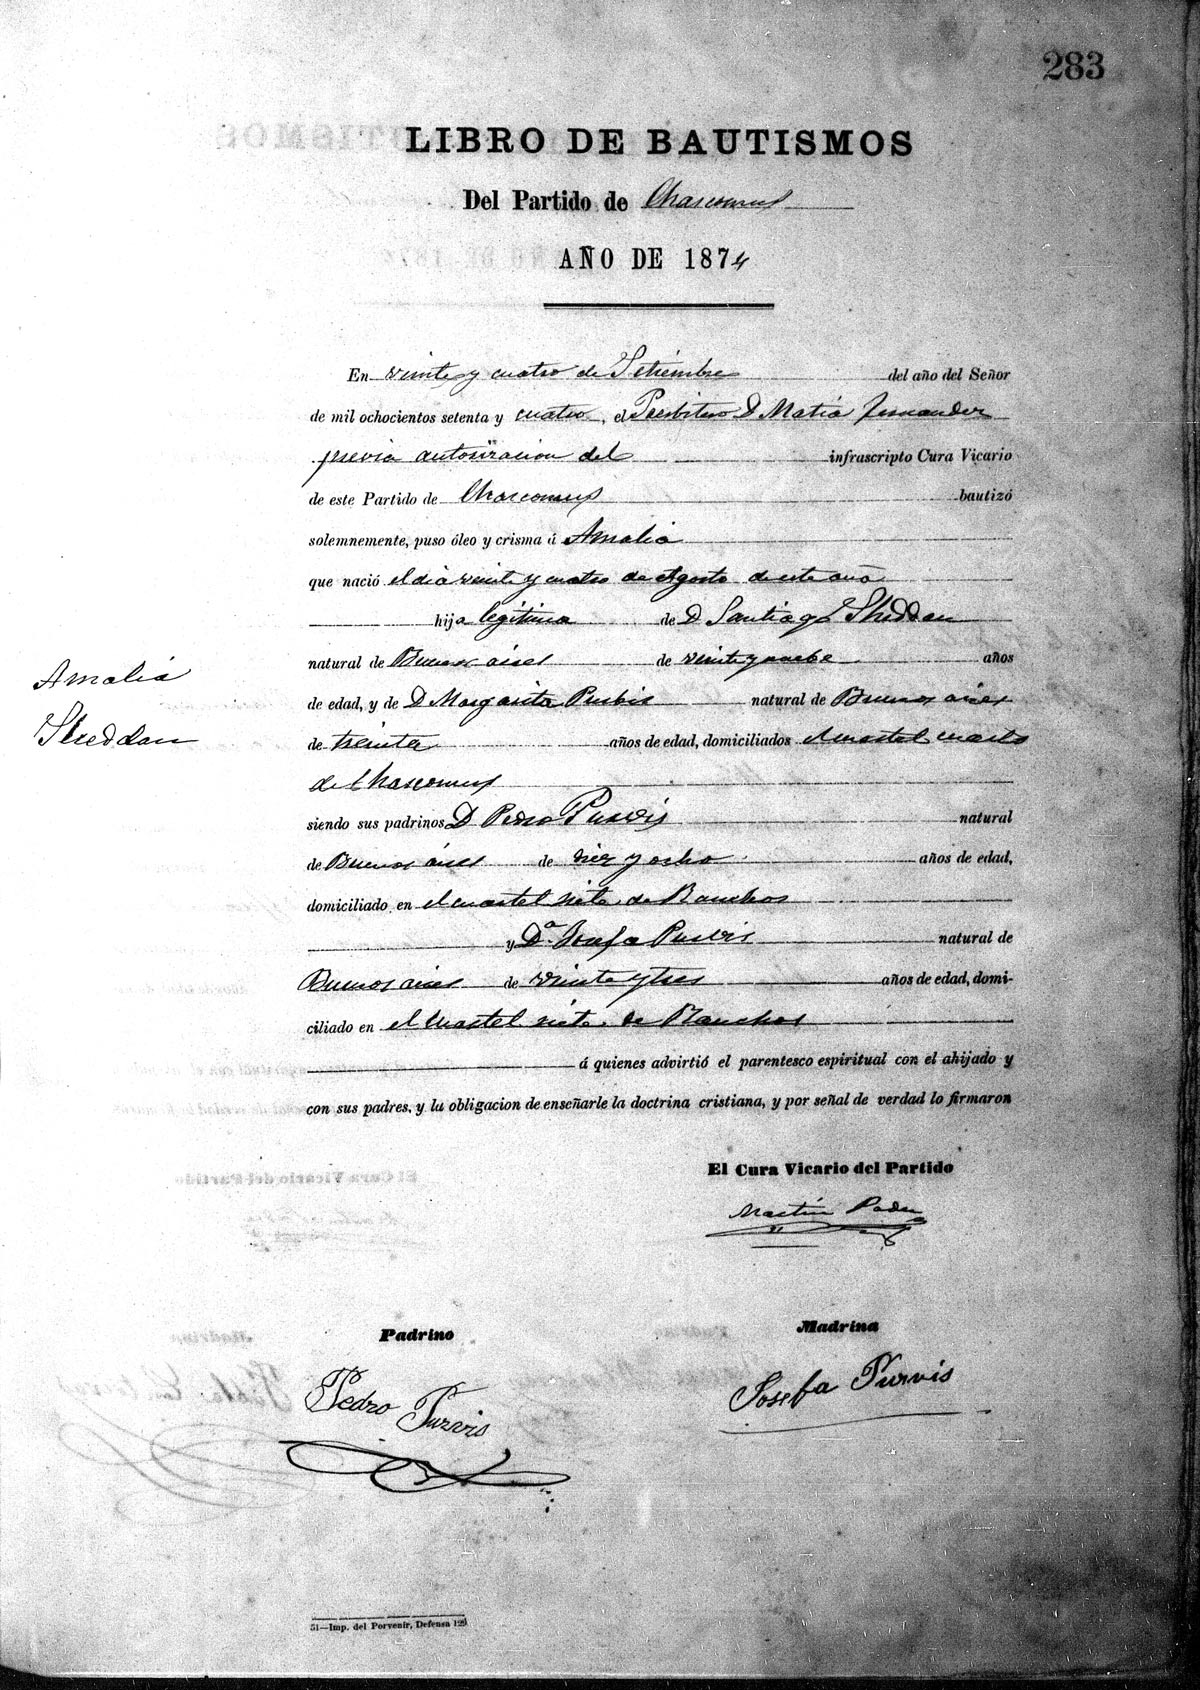 283
LIBRO DE BAUTISMOS
Del Partido de Chascomus
AÑO DE 1874
En veinte y cuatro de Setiembre del año del Señor
de mil ochocientos setenta y cuatro, el Presbitero D Matia Fernandez
previa autorizacion del infrascripto Cura Vicario
de este Partido de Chascomus bautizó
solemnemente, puso óleo y crisma á Amalia
que nació el dia veinte y cuatro de Agosto de este año
hija legitima de D Santiago Sheddan
natural de Buenos aires de veinte y nuebe años
Amalia
de edad, y de D Margarita Purbis natural de Buenos aires
Sheddan
de treinta años de edad, domiciliados cuartel cuarto
de Chascomus
siendo sus padrinos D Pedro Purvis natural
de Buenos aires de diez y ocho años de edad,
domiciliado en el cuartel siete de Ranchos
y Da. Josefa Purvis natural de
Buenos aires de veinte y tres años de edad, domi-
ciliado en el cuartel siete de Ranchos
á quienes advirtió el parentesco espiritual con el ahijado y
con sus padres, y la obligacion de enseñarle la doctrina cristiana, y por señal de verdad lo firmaron
El Cura Vicario del Partido
Martin
Padrino Madrina
Pedro Purvis Josefa Purvis
51—Imp. del Porvenir, Defensa 129